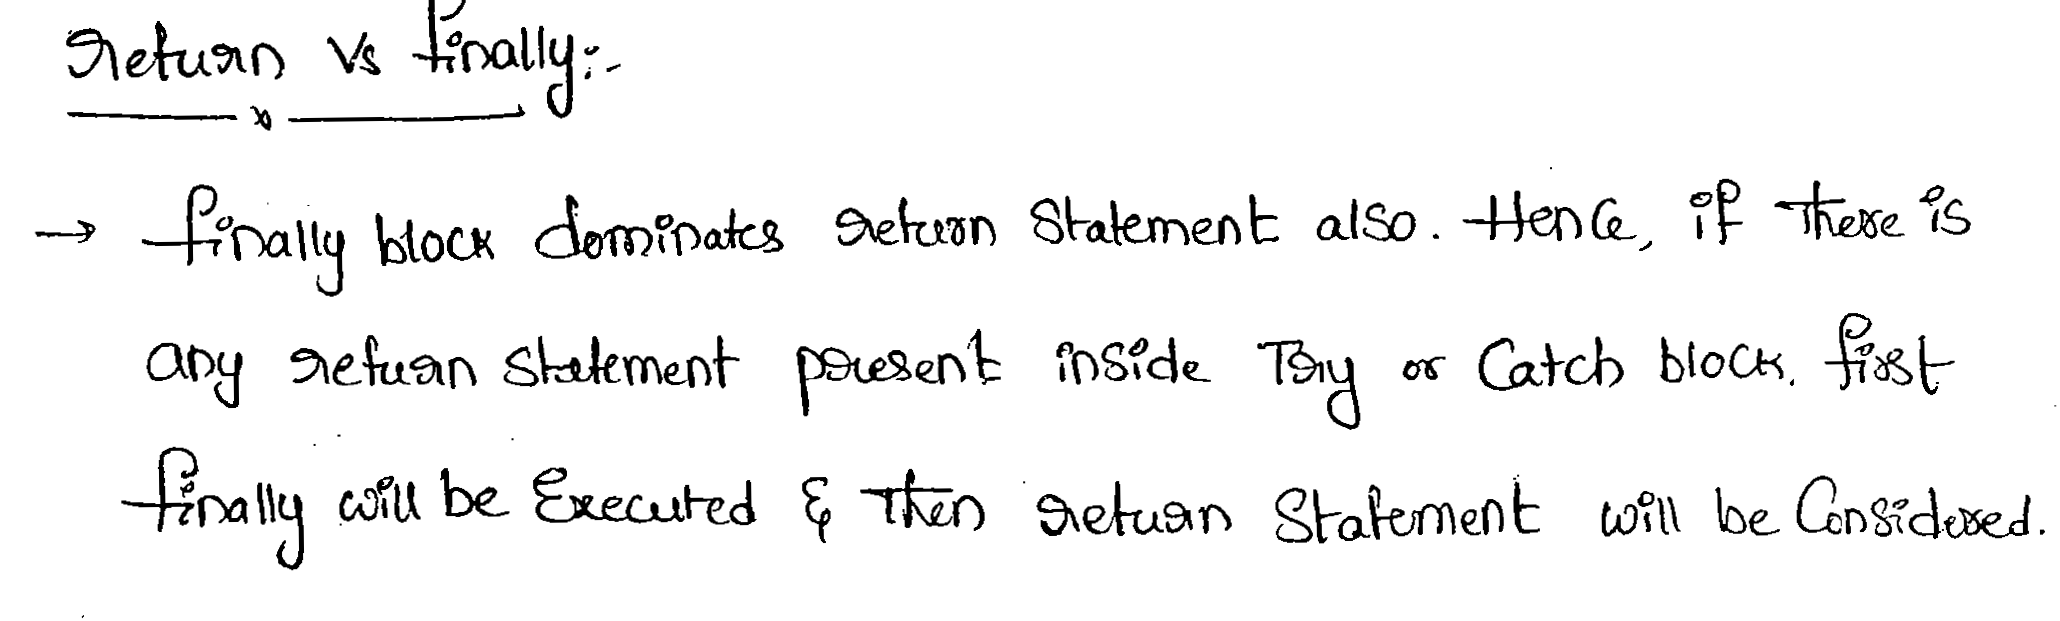 return Vs finally:-
→ finally block dominates return Statement also. Hence, if there is
any return statement present inside Try or Catch block, first
finally will be Executed & then return Statement will be Considered.